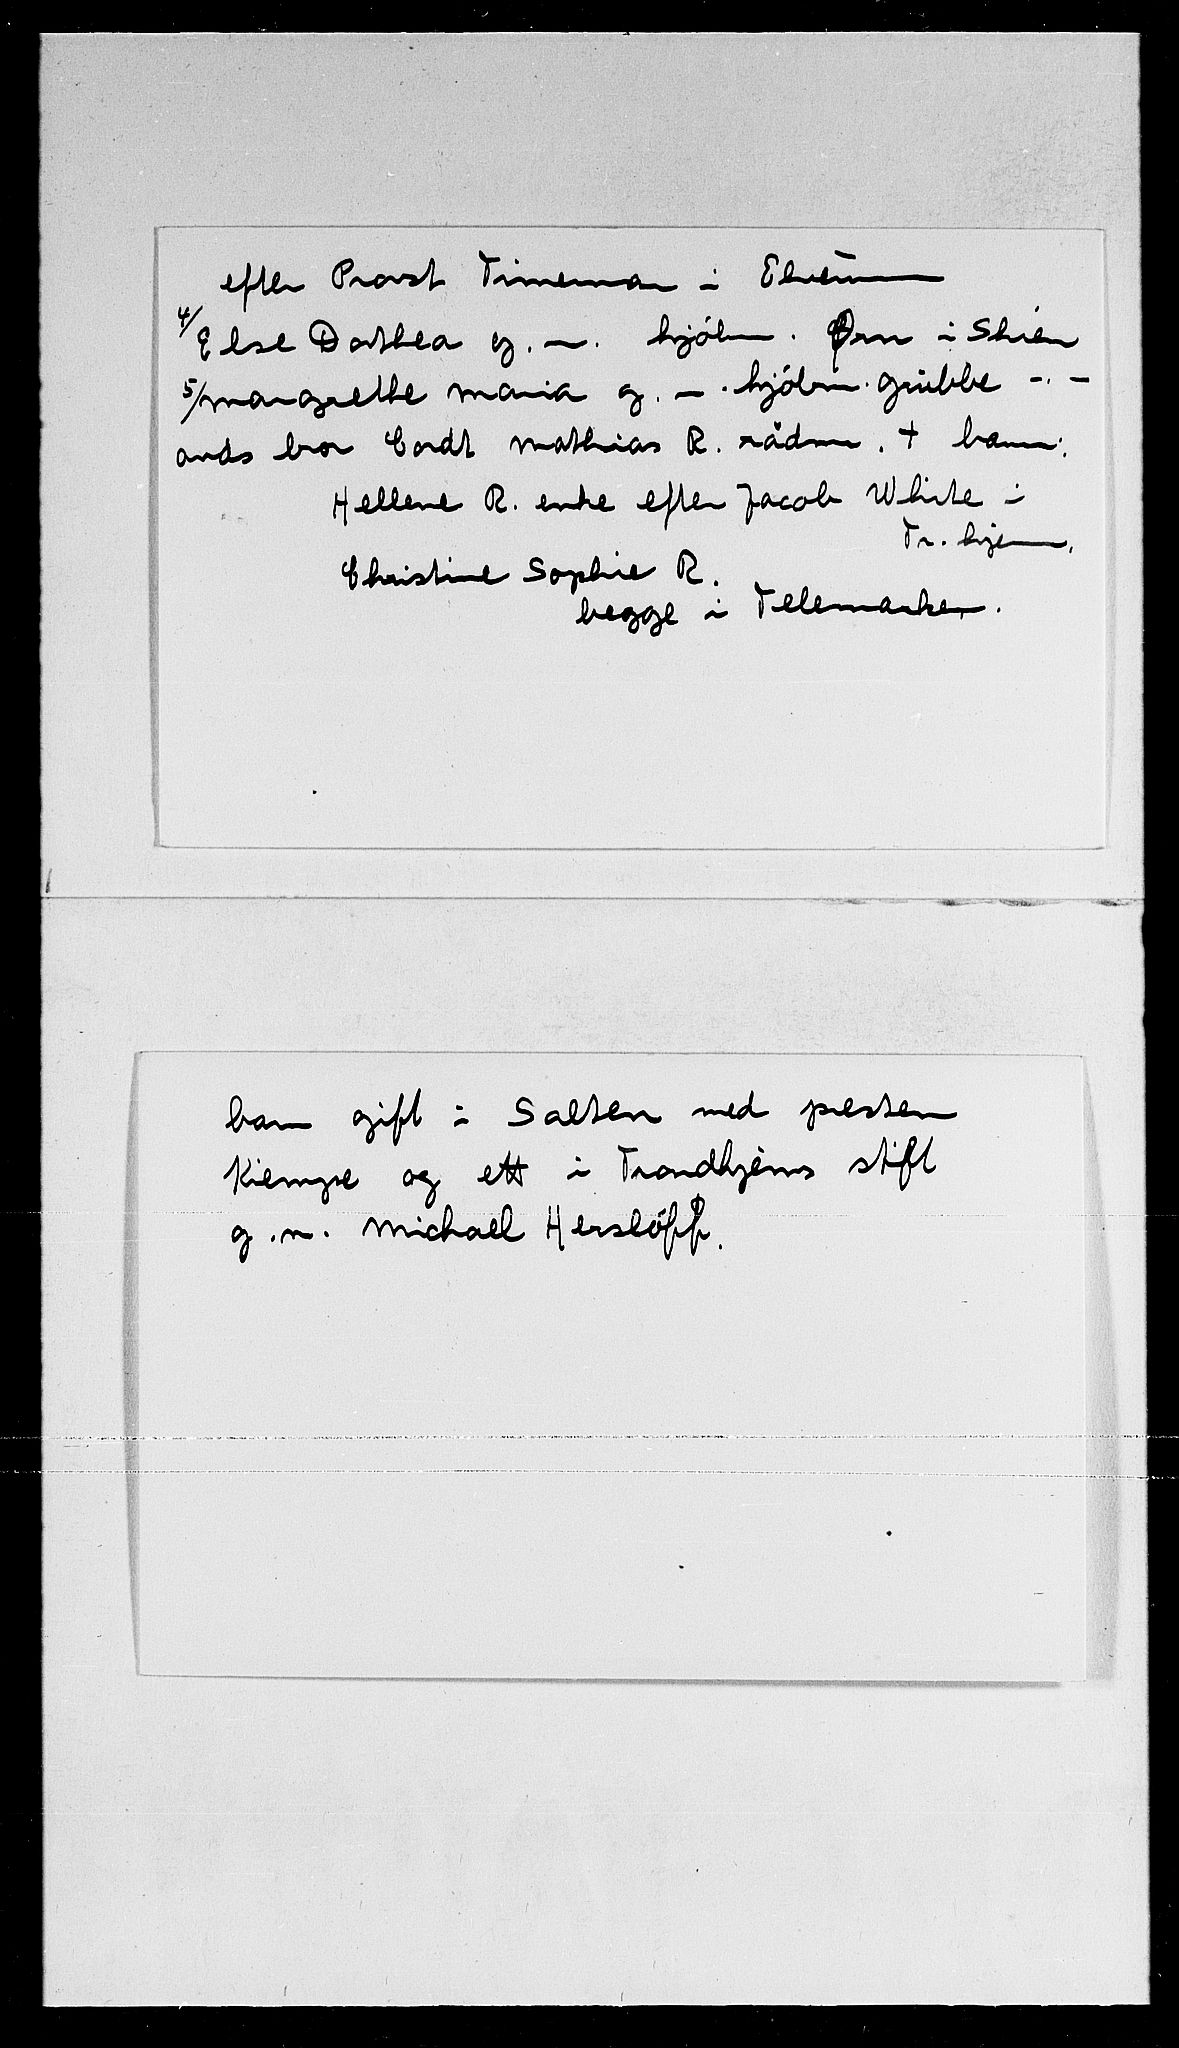 efter Provst Timeman i Elverum
4/ Else Dorthea g. m. kjöbm. Ørn i Skien
5/ Margrethe Maria g. m. kjöbm. Grubbe -.-
avds bror Cordt Mathias R. rådm. + barn:
Hellene R. enke efter Jacob White i
Tr. hjem.
Christine Sophie R.
begge i Telemarken.
barn gift i Salten med presten
Kiempe og ett i Trondhjems stift
g. m. Michael Herslöpp.